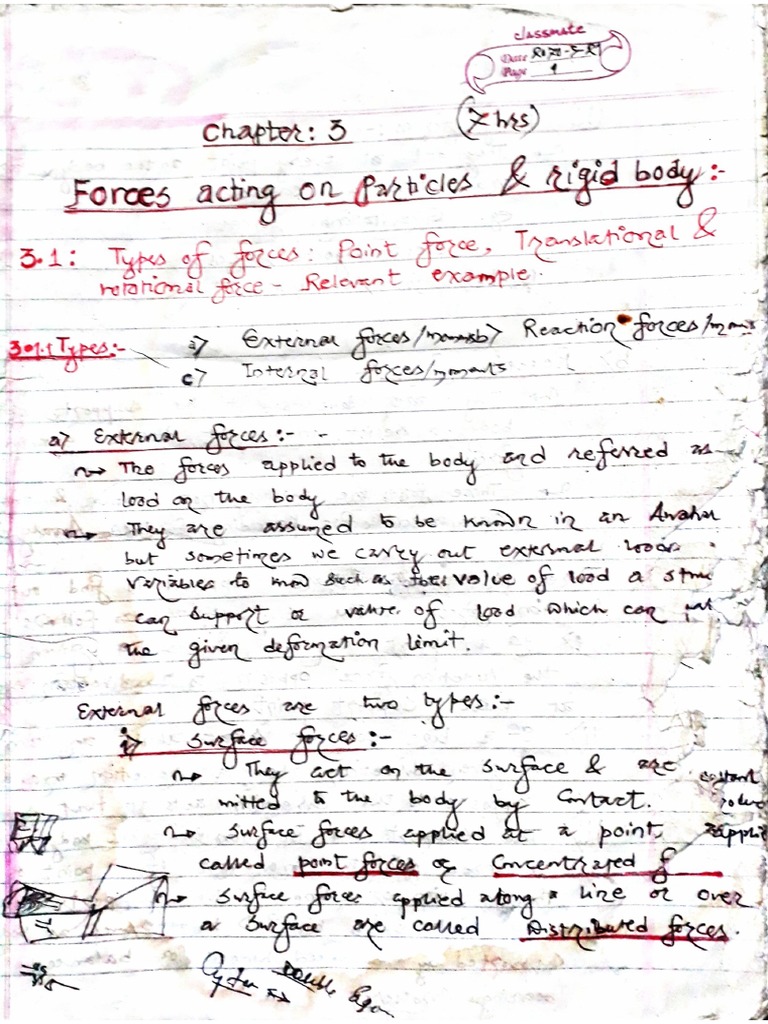 classmate
Date
Page 1
Chapter: 3 (7 hrs)
Forces acting on Particles & rigid body:-
3.1: Types of forces: Point force, Translational &
rotational force - Relevant example.
3.1.1 Types:- a) External forces/moments b) Reaction forces/
c) Internal forces/moments
a) External forces:-
The forces applied to the body and referred as
load on the body
They are assumed to be known in an
but sometimes we carry out external
variables to such as value of load a
can support or value of load which can
the given deformation limit.
External forces are two types:-
i) Surface forces:-
They act on the surface & are
mitted to the body by Contact.
Surface forces applied at a point
called point forces or Concentrated f
Surface forces applied along a line or over
a surface are called Distributed forces.